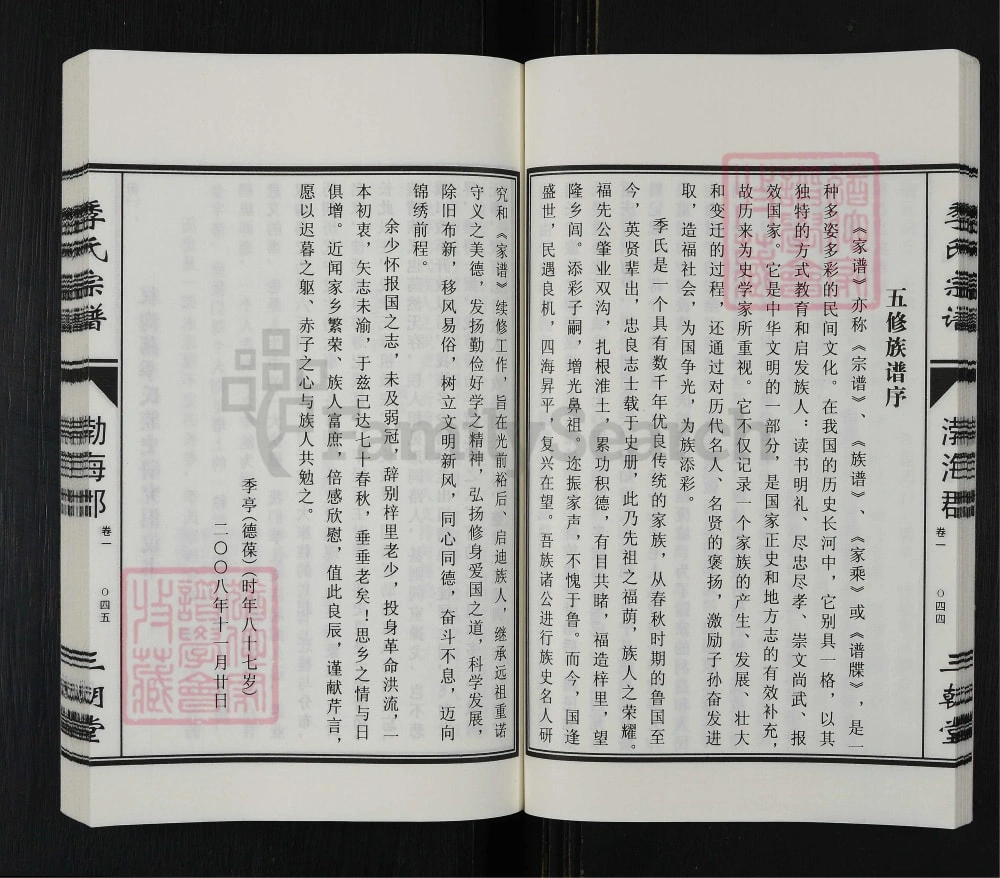 五修族谱序
《家谱》亦称《宗谱》、《族谱》、《家乘》或《谱牒》，是一
种多姿多彩的民间文化。在我国的历史长河中，它别具一格，以其
独特的方式教育和启发族人：读书明礼、尽忠尽孝、崇文尚武、报
效国家。它是中华文明的一部分，是国家正史和地方志的有效补充，
故历来为史学家所重视。它不仅记录一个家族的产生、发展、壮大
和变迁的过程，还通过对历代名人、名贤的褒扬，激励子孙奋发进
取，造福社会，为国争光，为族添彩。
季氏是一个具有数千年优良传统的家族，从春秋时期的鲁国至
今，英贤辈出，忠良志士载于史册，此乃先祖之福荫，族人之荣耀。
福先公肇业双沟，扎根淮土，累功积德，有目共睹，福造梓里，望
隆乡闾。添彩子嗣，增光鼻祖，还振家声，不愧于鲁。而今，国逢
盛世，民遇良机，四海昇平，复兴在望。吾族诸公进行族史名人研
季氏宗谱
渤海郡
卷一
〇四四
三朝堂
究和《家谱》续修工作，旨在光前裕后、启迪族人，继承远祖重诺
守义之美德，发扬勤俭好学之精神，弘扬修身爱国之道，科学发展，
除旧布新，移风易俗，树立文明新风，同心同德，奋斗不息，迈向
锦绣前程。
余少怀报国之志，未及弱冠，辞别梓里老少，投身革命洪流，三
本初衷，矢志未渝，于兹已达七十春秋，垂垂老矣！思乡之情与日
俱增。近闻家乡繁荣、族人富庶，倍感欣慰，值此良辰，谨献芹言，
愿以迟暮之躯、赤子之心与族人共勉之。
季亭（德葆）（时年八十七岁）
二〇〇八年十月廿日
季氏宗谱
渤海郡
卷一
〇四五
三朝堂
FamilySearch